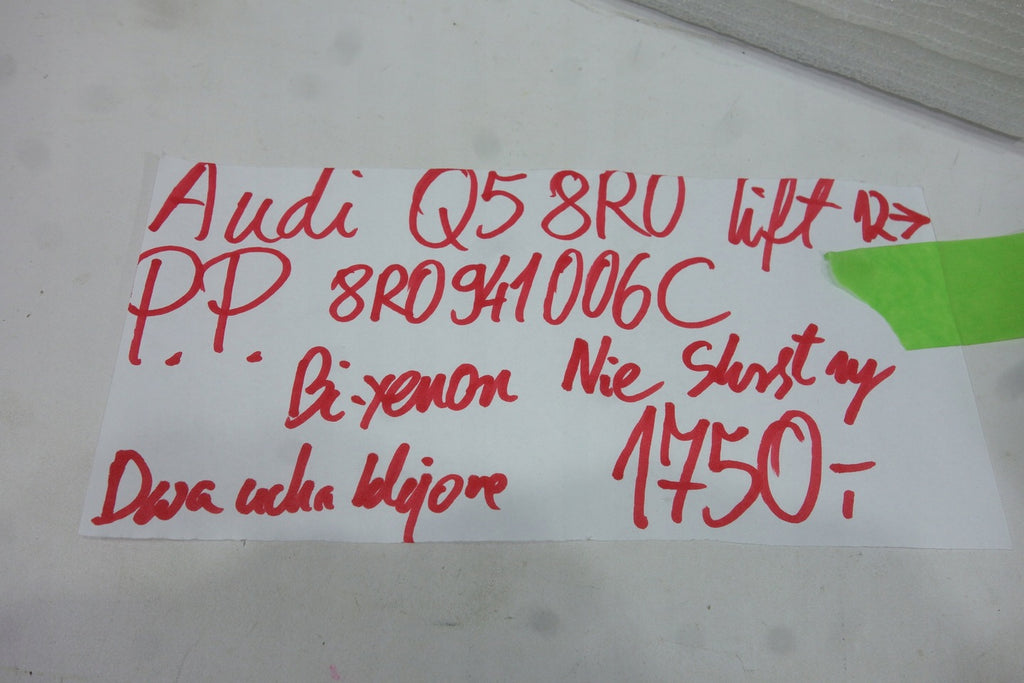 Audi Q5 8R0 lift 12→
P.P. 8R0941006C
Bi-xenon Nie Skrętny
Dwa ucha klejone 1750,-